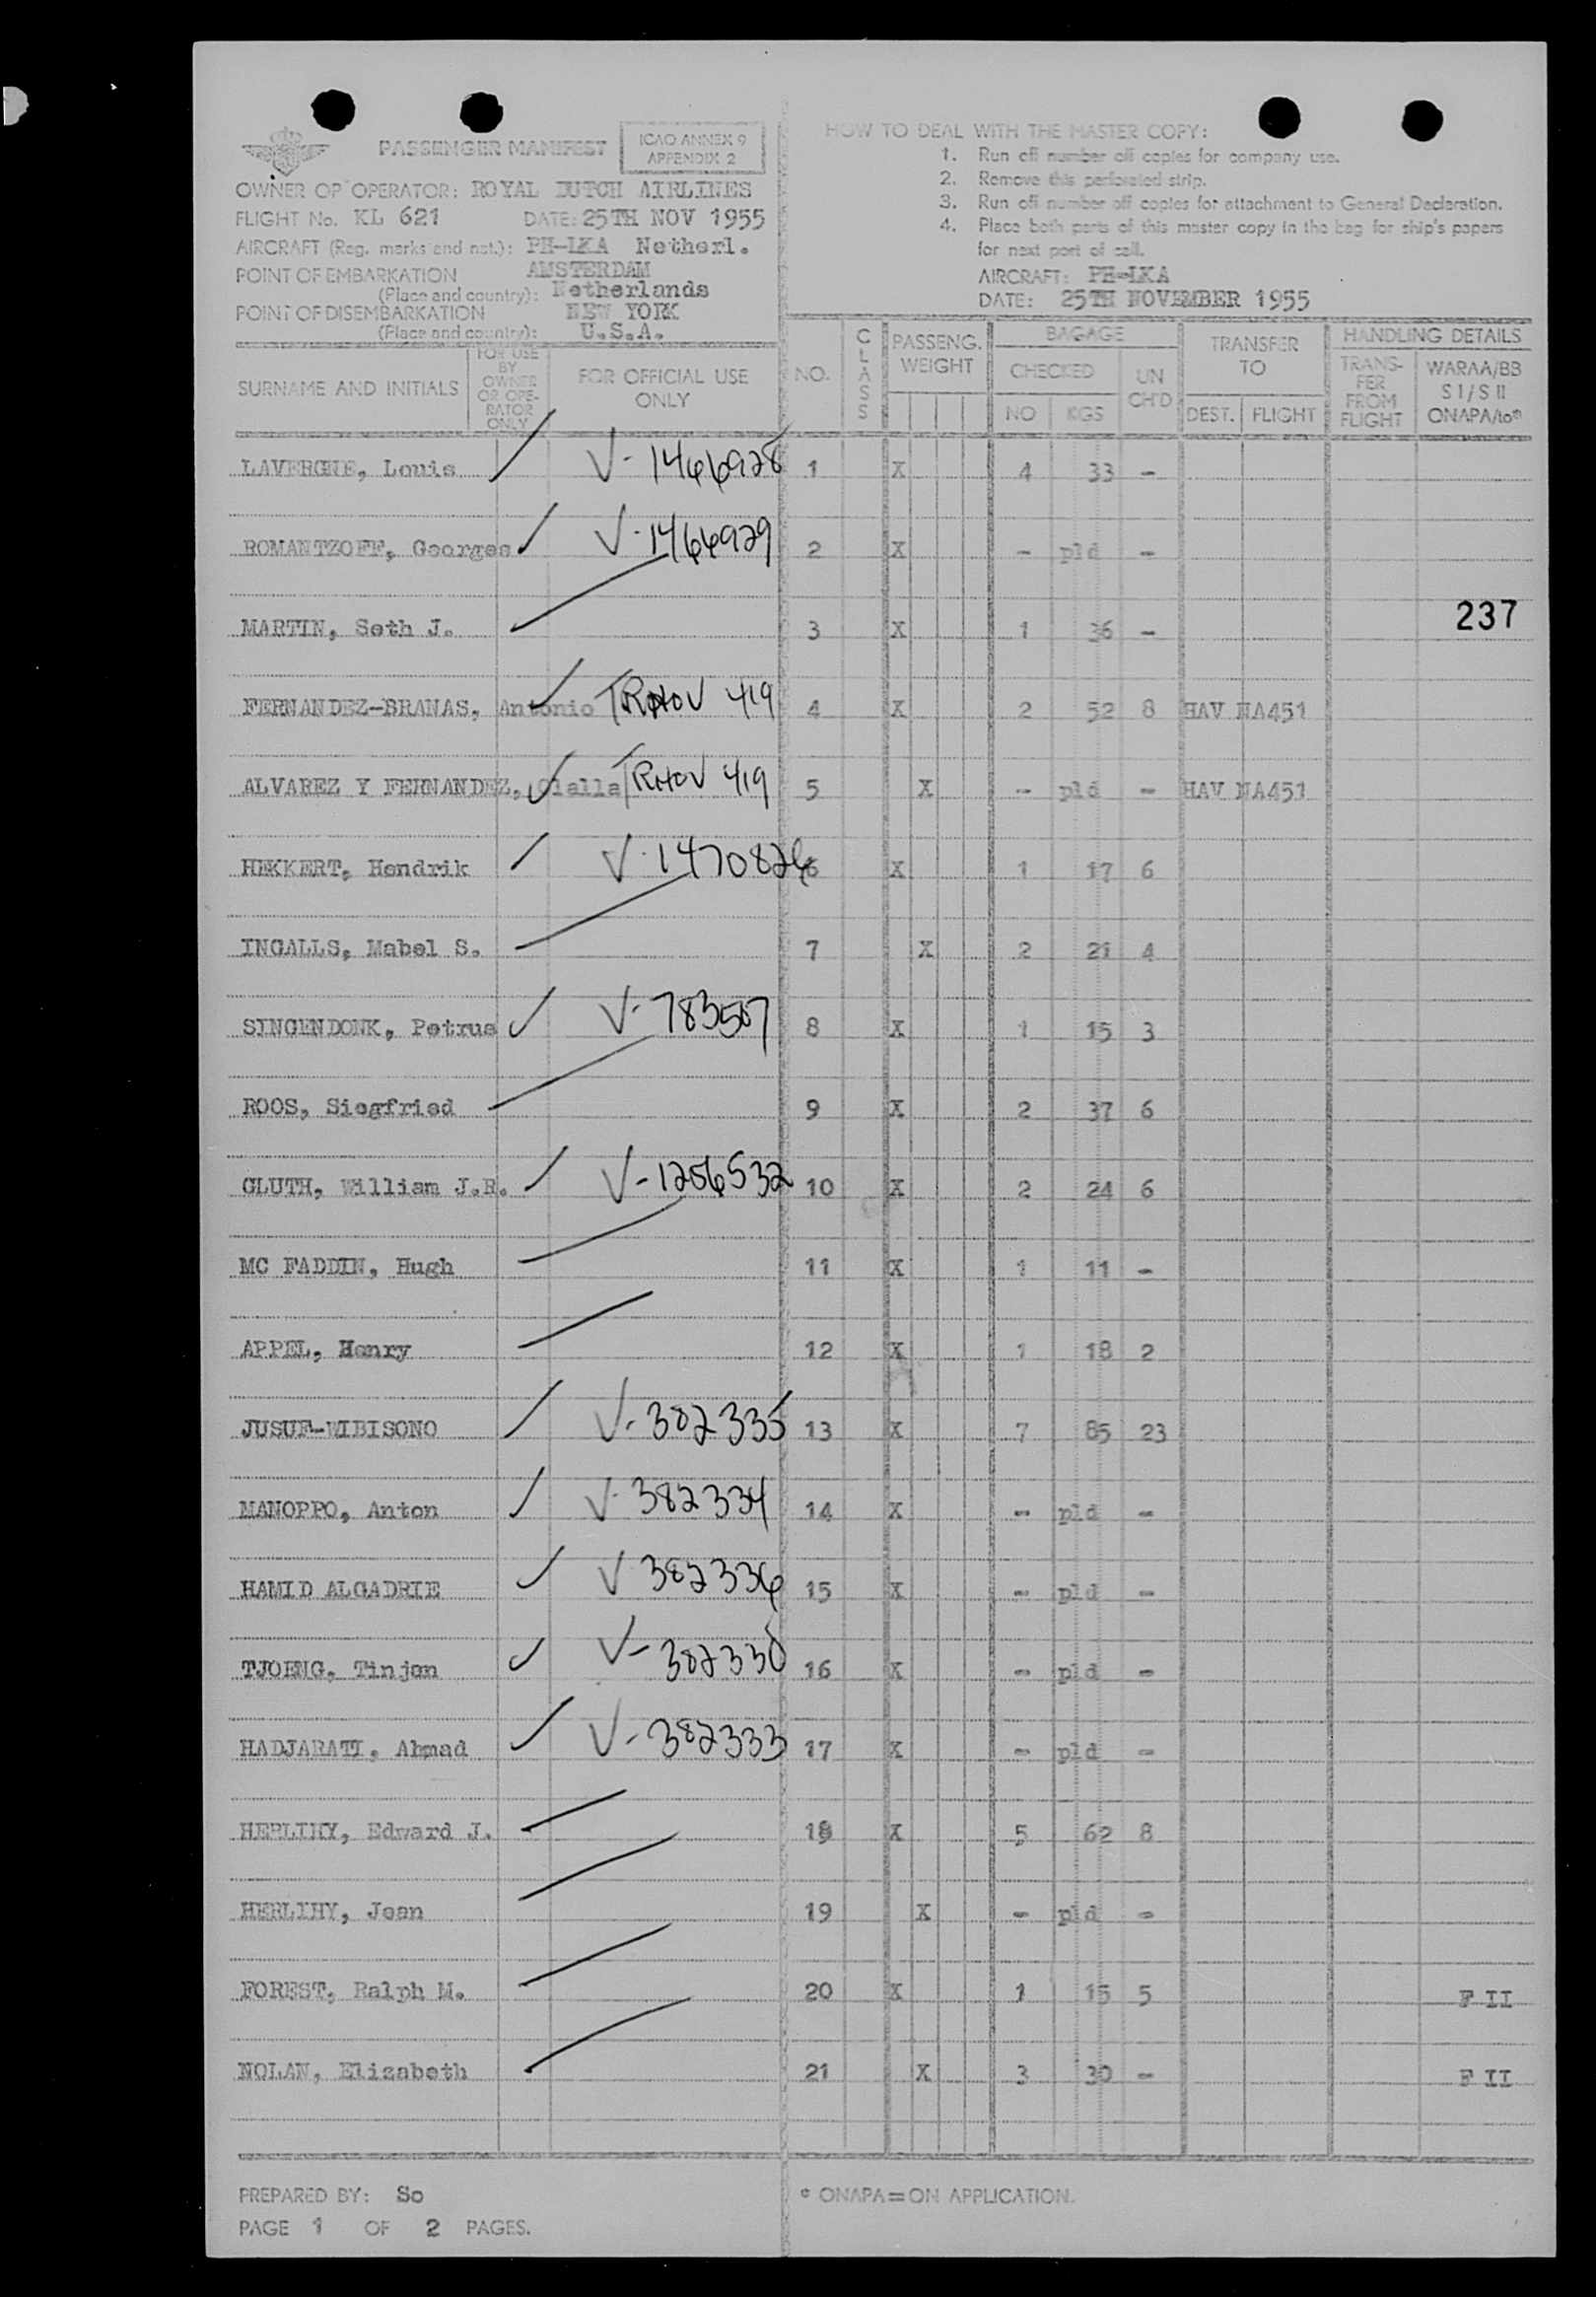 PASSENGER MANIFEST
ICAO ANNEX 9
APPENDIX 2
OWNER OF OPERATOR: ROYAL DUTCH AIRLINES
FLIGHT No. KL 621 DATE: 25TH NOV 1955
AIRCRAFT (Reg. marks and nat.): PH-LKA Netherl.
POINT OF EMBARKATION AMSTERDAM
(Place and country): Netherlands
POINT OF DISEMBARKATION NEW YORK
(Place and country): U.S.A.
HOW TO DEAL WITH THE MASTER COPY:
1. Run off number off copies for company use.
2. Remove this perforated strip.
3. Run off number off copies for attachment to General Declaration.
4. Place both parts of this master copy in the bag for ship's papers
for next port of call.
AIRCRAFT: PH-LKA
DATE: 25TH NOVEMBER 1955
SURNAME AND INITIALS FOR USE BY OWNER OR OPE-RATOR ONLY FOR OFFICIAL USE ONLY NO. CLASS PASSENG. WEIGHT BAGAGE CHECKED NO KGS UN CH'D TRANSFER TO DEST. FLIGHT HANDLING DETAILS TRANS-FER FROM FLIGHT WARAA/BB S I / S II ONAPA/to*
LAVERGNE, Louis V-1466928 1 X 4 33 -
ROMANTZOFF, Georges V-1466929 2 X - pld -
MARTIN, Seth J. 3 X 1 36 - 237
FERNANDEZ-BRANAS, Antonio 419 4 X 2 52 8 HAV NA451
ALVAREZ Y FERNANDEZ, Olalla 419 5 X - pld - HAV NA451
HEKKERT, Hendrik V-1470826 6 X 1 17 6
INGALLS, Mabel S. 7 X 2 21 4
SINGENDONK, Petrus V-783507 8 X 1 15 3
ROOS, Siegfried 9 X 2 37 6
GLUTH, William J.R. V-1256532 10 X 2 24 6
MC FADDIN, Hugh 11 X 1 11 -
APPEL, Henry 12 X 1 18 2
JUSUF-WIBISONO V-382335 13 X 7 85 23
MANOPPO, Anton V-382334 14 X - pld -
HAMID ALGADRIE V-382336 15 X - pld -
TJOENG, Tinjan 16 X - pld -
HADJARATI, Ahmad V-382333 17 X - pld -
HERLIHY, Edward J. 18 X 5 62 8
HERLIHY, Jean 19 X - pld -
FOREST, Ralph M. 20 X 1 15 5 F II
NOLAN, Elizabeth 21 X 3 30 - F II
PREPARED BY: So
* ONAPA=ON APPLICATION.
PAGE 1 OF 2 PAGES.